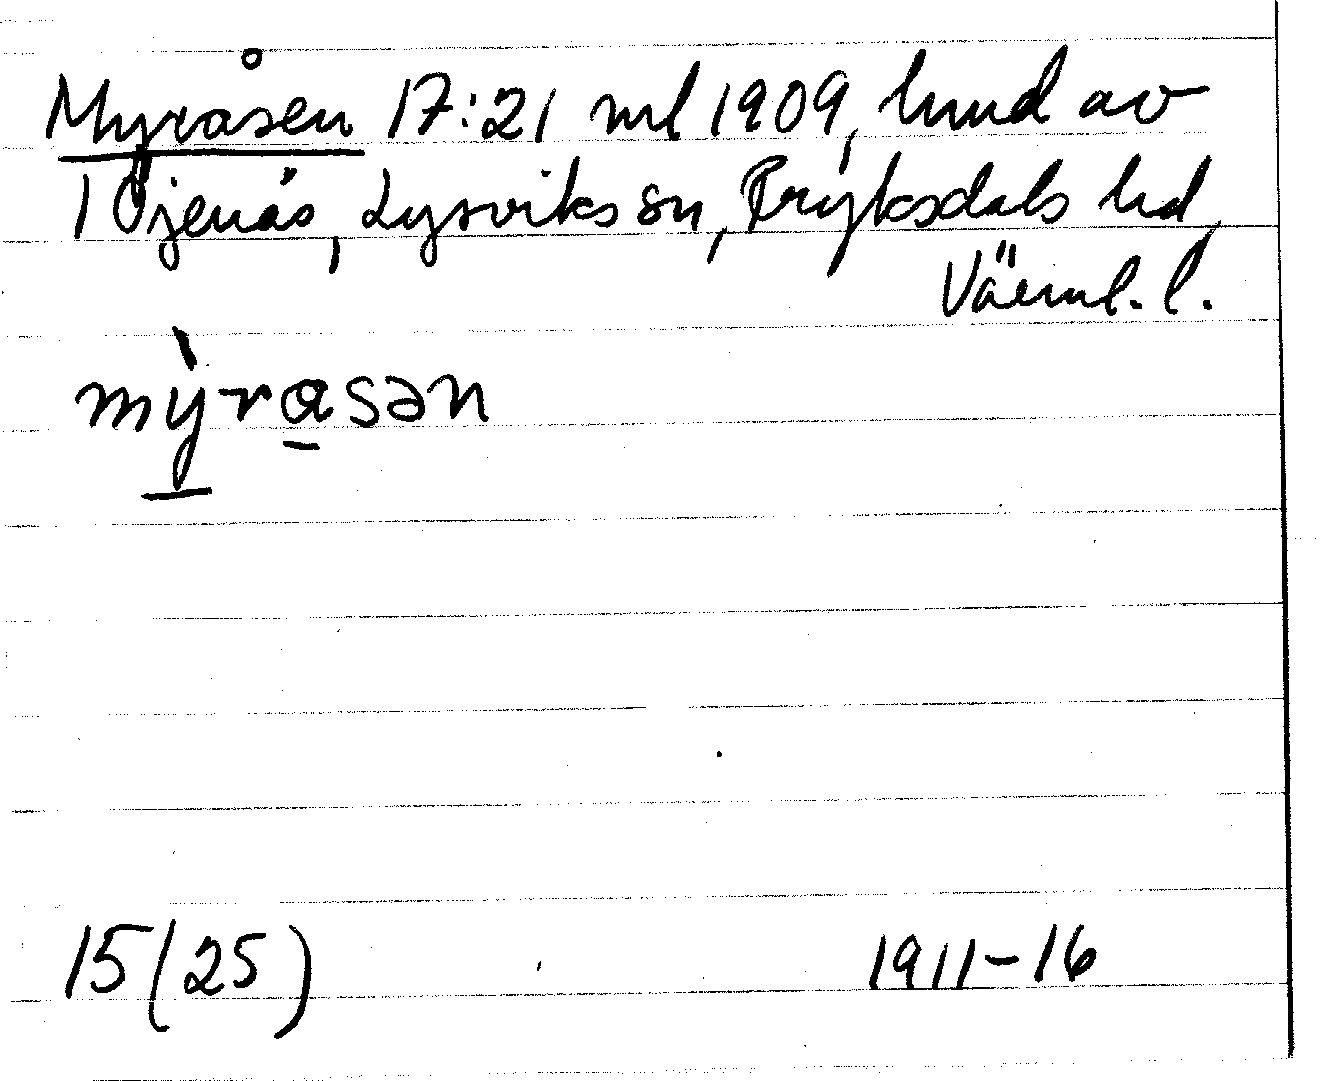 Myråsen 17:21 ml 1909, hmd av
1 Öjenäs, Lysviks sn, Fryksdals hd,
Värml. l.
mỳrasən
15(25) 1911-16